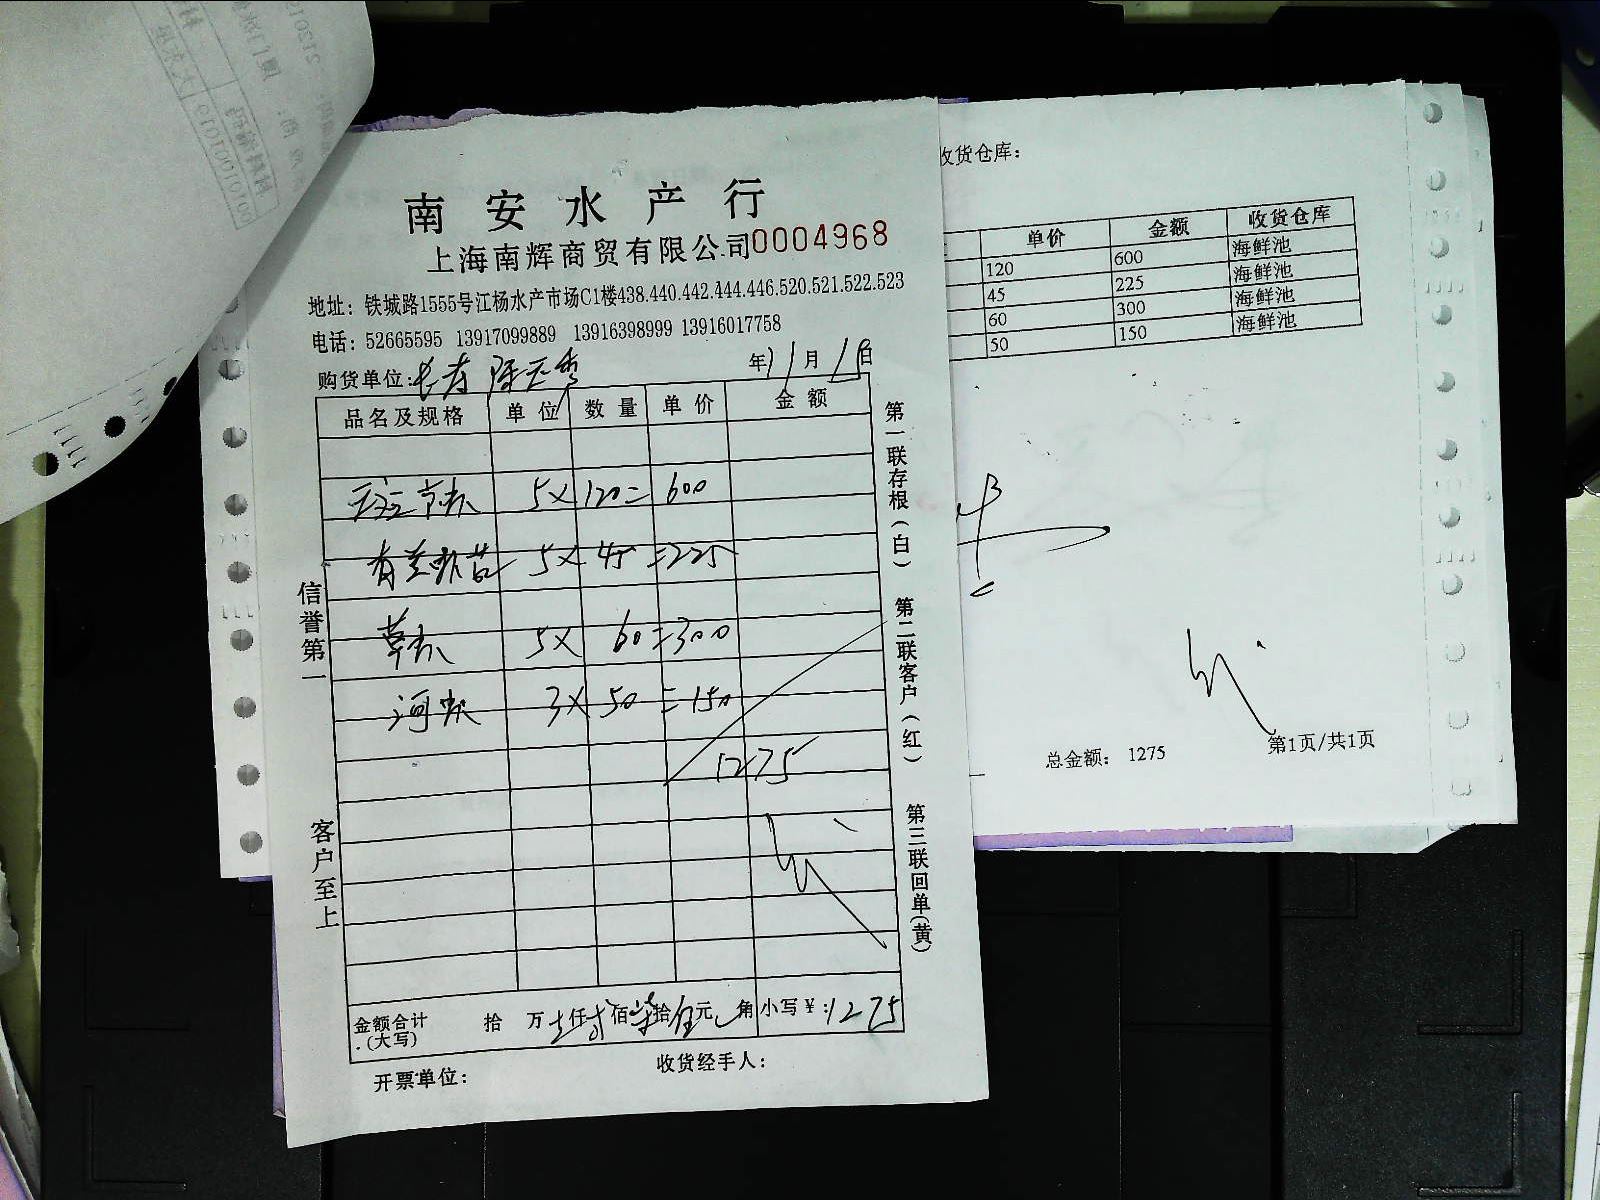 南安水产行
上海南辉商贸有限公司0004968
地址：铁城路1555号江杨水产市场C1楼438.440.442.444.446.520.521.522.523
电话：52665595 13917099889 13916398999 13916017758
购货单位:长寿 年11月1日
品名及规格 单位 数量 单价 金额
5×120=600
5×45=225
草虾 5×60=300
河虾 3×50=150
1275
金额合计(大写) 拾 万 仟贰佰柒拾伍元 角 小写￥:1275
开票单位: 收货经手人:
信誉第一
客户至上
第一联存根(白) 第二联客户(红) 第三联回单(黄)
收货仓库:
单价 金额 收货仓库
120 600 海鲜池
45 225 海鲜池
60 300 海鲜池
50 150 海鲜池
总金额: 1275
第1页/共1页